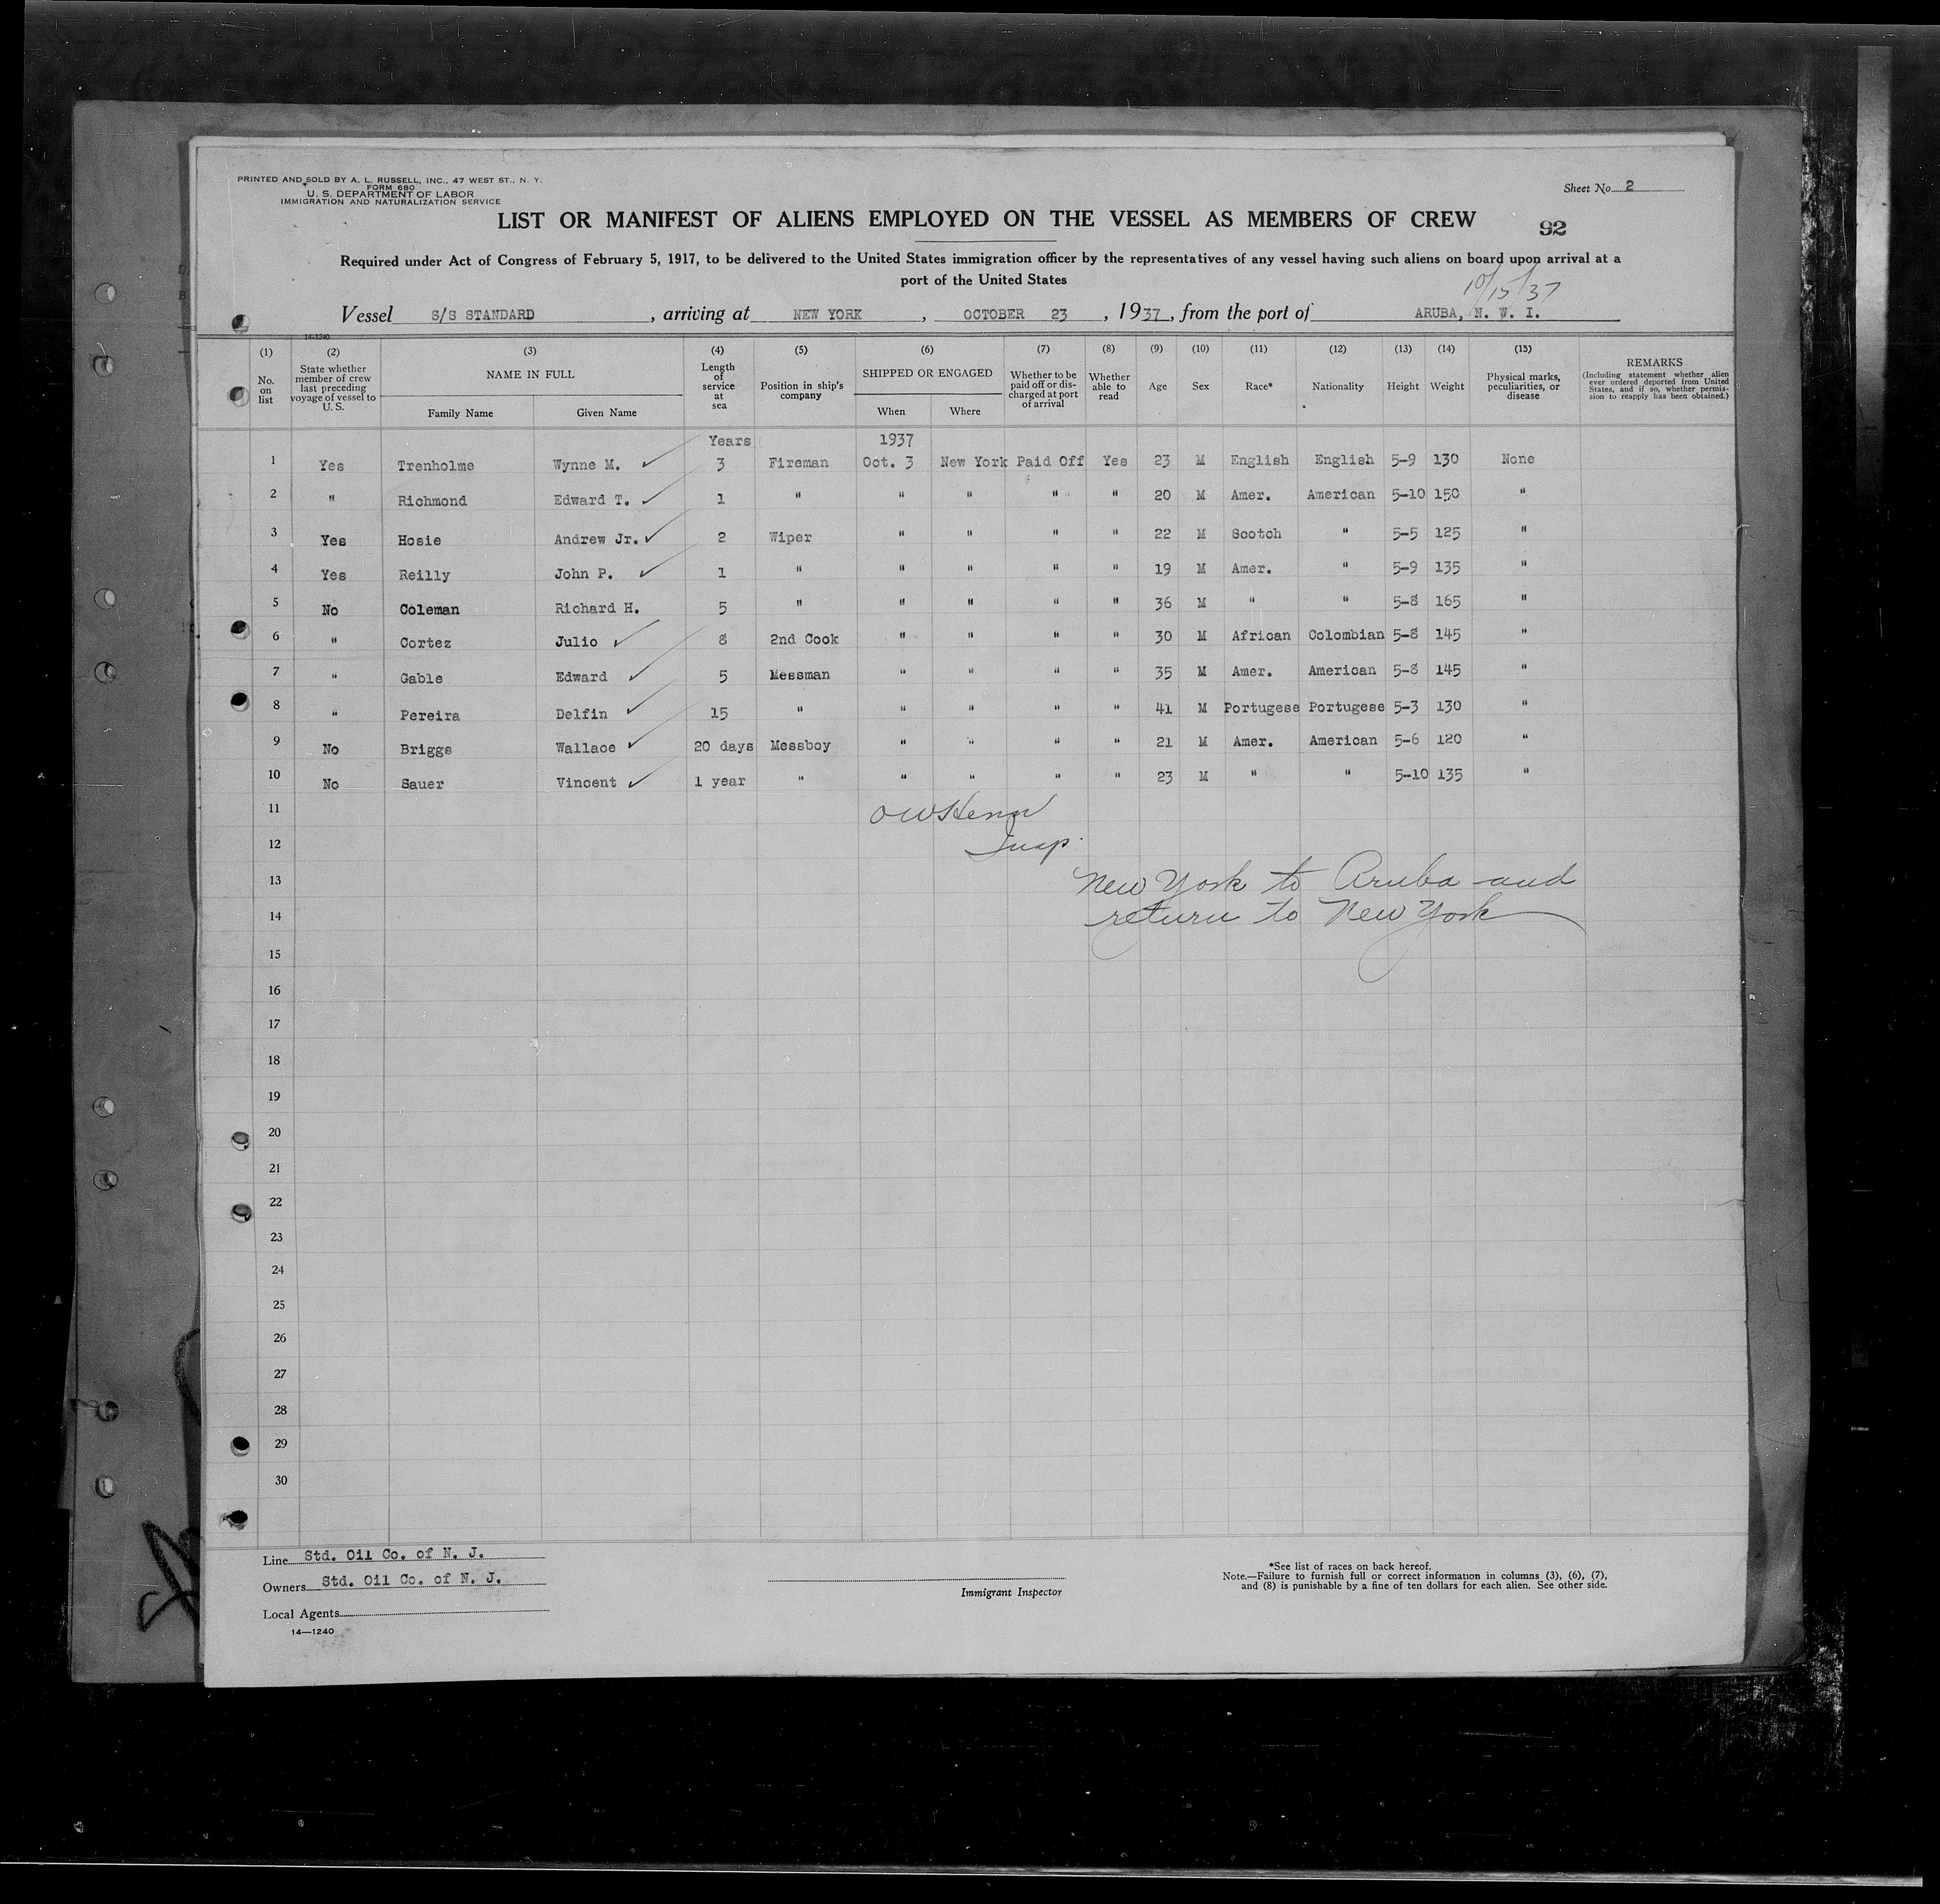 PRINTED AND SOLD BY A. L. RUSSELL, INC., 47 WEST ST., N. Y.
FORM 680
U. S. DEPARTMENT OF LABOR
IMMIGRATION AND NATURALIZATION SERVICE
Sheet No. 2
LIST OR MANIFEST OF ALIENS EMPLOYED ON THE VESSEL AS MEMBERS OF CREW
92
Required under Act of Congress of February 5, 1917, to be delivered to the United States immigration officer by the representatives of any vessel having such aliens on board upon arrival at a
port of the United States
10/15/37
Vessel S/S STANDARD, arriving at NEW YORK, OCTOBER 23, 1937, from the port of ARUBA, N. W. I.
14-1240
(1) No. on list (2) State whether member of crew last preceding voyage of vessel to U. S. (3) NAME IN FULL Family Name Given Name (4) Length of service at sea (5) Position in ship's company (6) SHIPPED OR ENGAGED When Where (7) Whether to be paid off or discharged at port of arrival (8) Whether able to read (9) Age (10) Sex (11) Race* (12) Nationality (13) Height (14) Weight (15) Physical marks, peculiarities, or disease REMARKS (Including statement whether alien ever ordered deported from United States, and if so, whether permission to reapply has been obtained.)
Years 1937
1 Yes Trenholme Wynne M. ✓ 3 Fireman Oct. 3 New York Paid Off Yes 23 M English English 5-9 130 None
2 " Richmond Edward T. ✓ 1 " " " " " 20 M Amer. American 5-10 150 "
3 Yes Hosie Andrew Jr. ✓ 2 Wiper " " " " 22 M Scotch " 5-5 125 "
4 Yes Reilly John P. ✓ 1 " " " " " 19 M Amer. " 5-9 135 "
5 No Coleman Richard H. 5 " " " " " 36 M " " 5-8 165 "
6 " Cortez Julio ✓ 8 2nd Cook " " " " 30 M African Colombian 5-8 145 "
7 " Gable Edward ✓ 5 Messman " " " " 35 M Amer. American 5-8 145 "
8 " Pereira Delfin ✓ 15 " " " " " 41 M Portugese Portugese 5-3 130 "
9 No Briggs Wallace ✓ 20 days Messboy " " " " 21 M Amer. American 5-6 120 "
10 No Sauer Vincent ✓ 1 year " " " " " 23 M " " 5-10 135 "
11
12 Insp.
13 New York to Aruba and
14 return to New York
15
16
17
18
19
20
21
22
23
24
25
26
27
28
29
30
Line Std. Oil Co. of N. J.
Owners Std. Oil Co. of N. J.
Local Agents
14—1240
Immigrant Inspector
*See list of races on back hereof.
Note.—Failure to furnish full or correct information in columns (3), (6), (7),
and (8) is punishable by a fine of ten dollars for each alien. See other side.